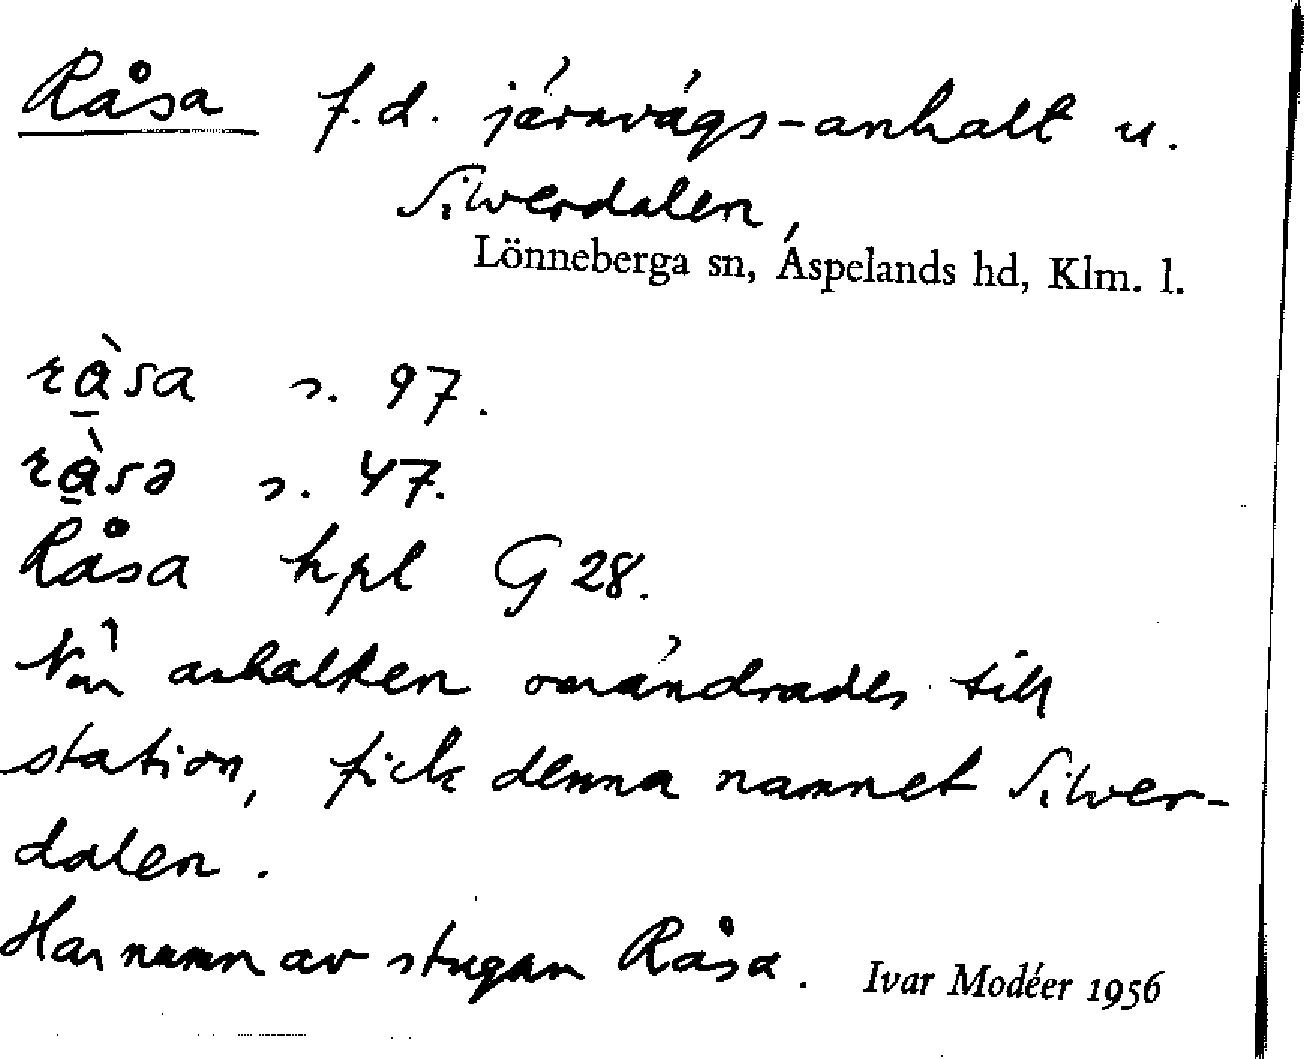 Råsa f.d. järnvägs-anhalt u.
Silverdalen,
Lönneberga sn, Aspelands hd, Klm. l.
ràsa s. 97.
ràsə s. 47.
Råsa hpl G 28.
När anhalten omändrades till
station, fick denna namnet Silver-
dalen.
Har namn av stugan Råsa. Ivar Modéer 1956